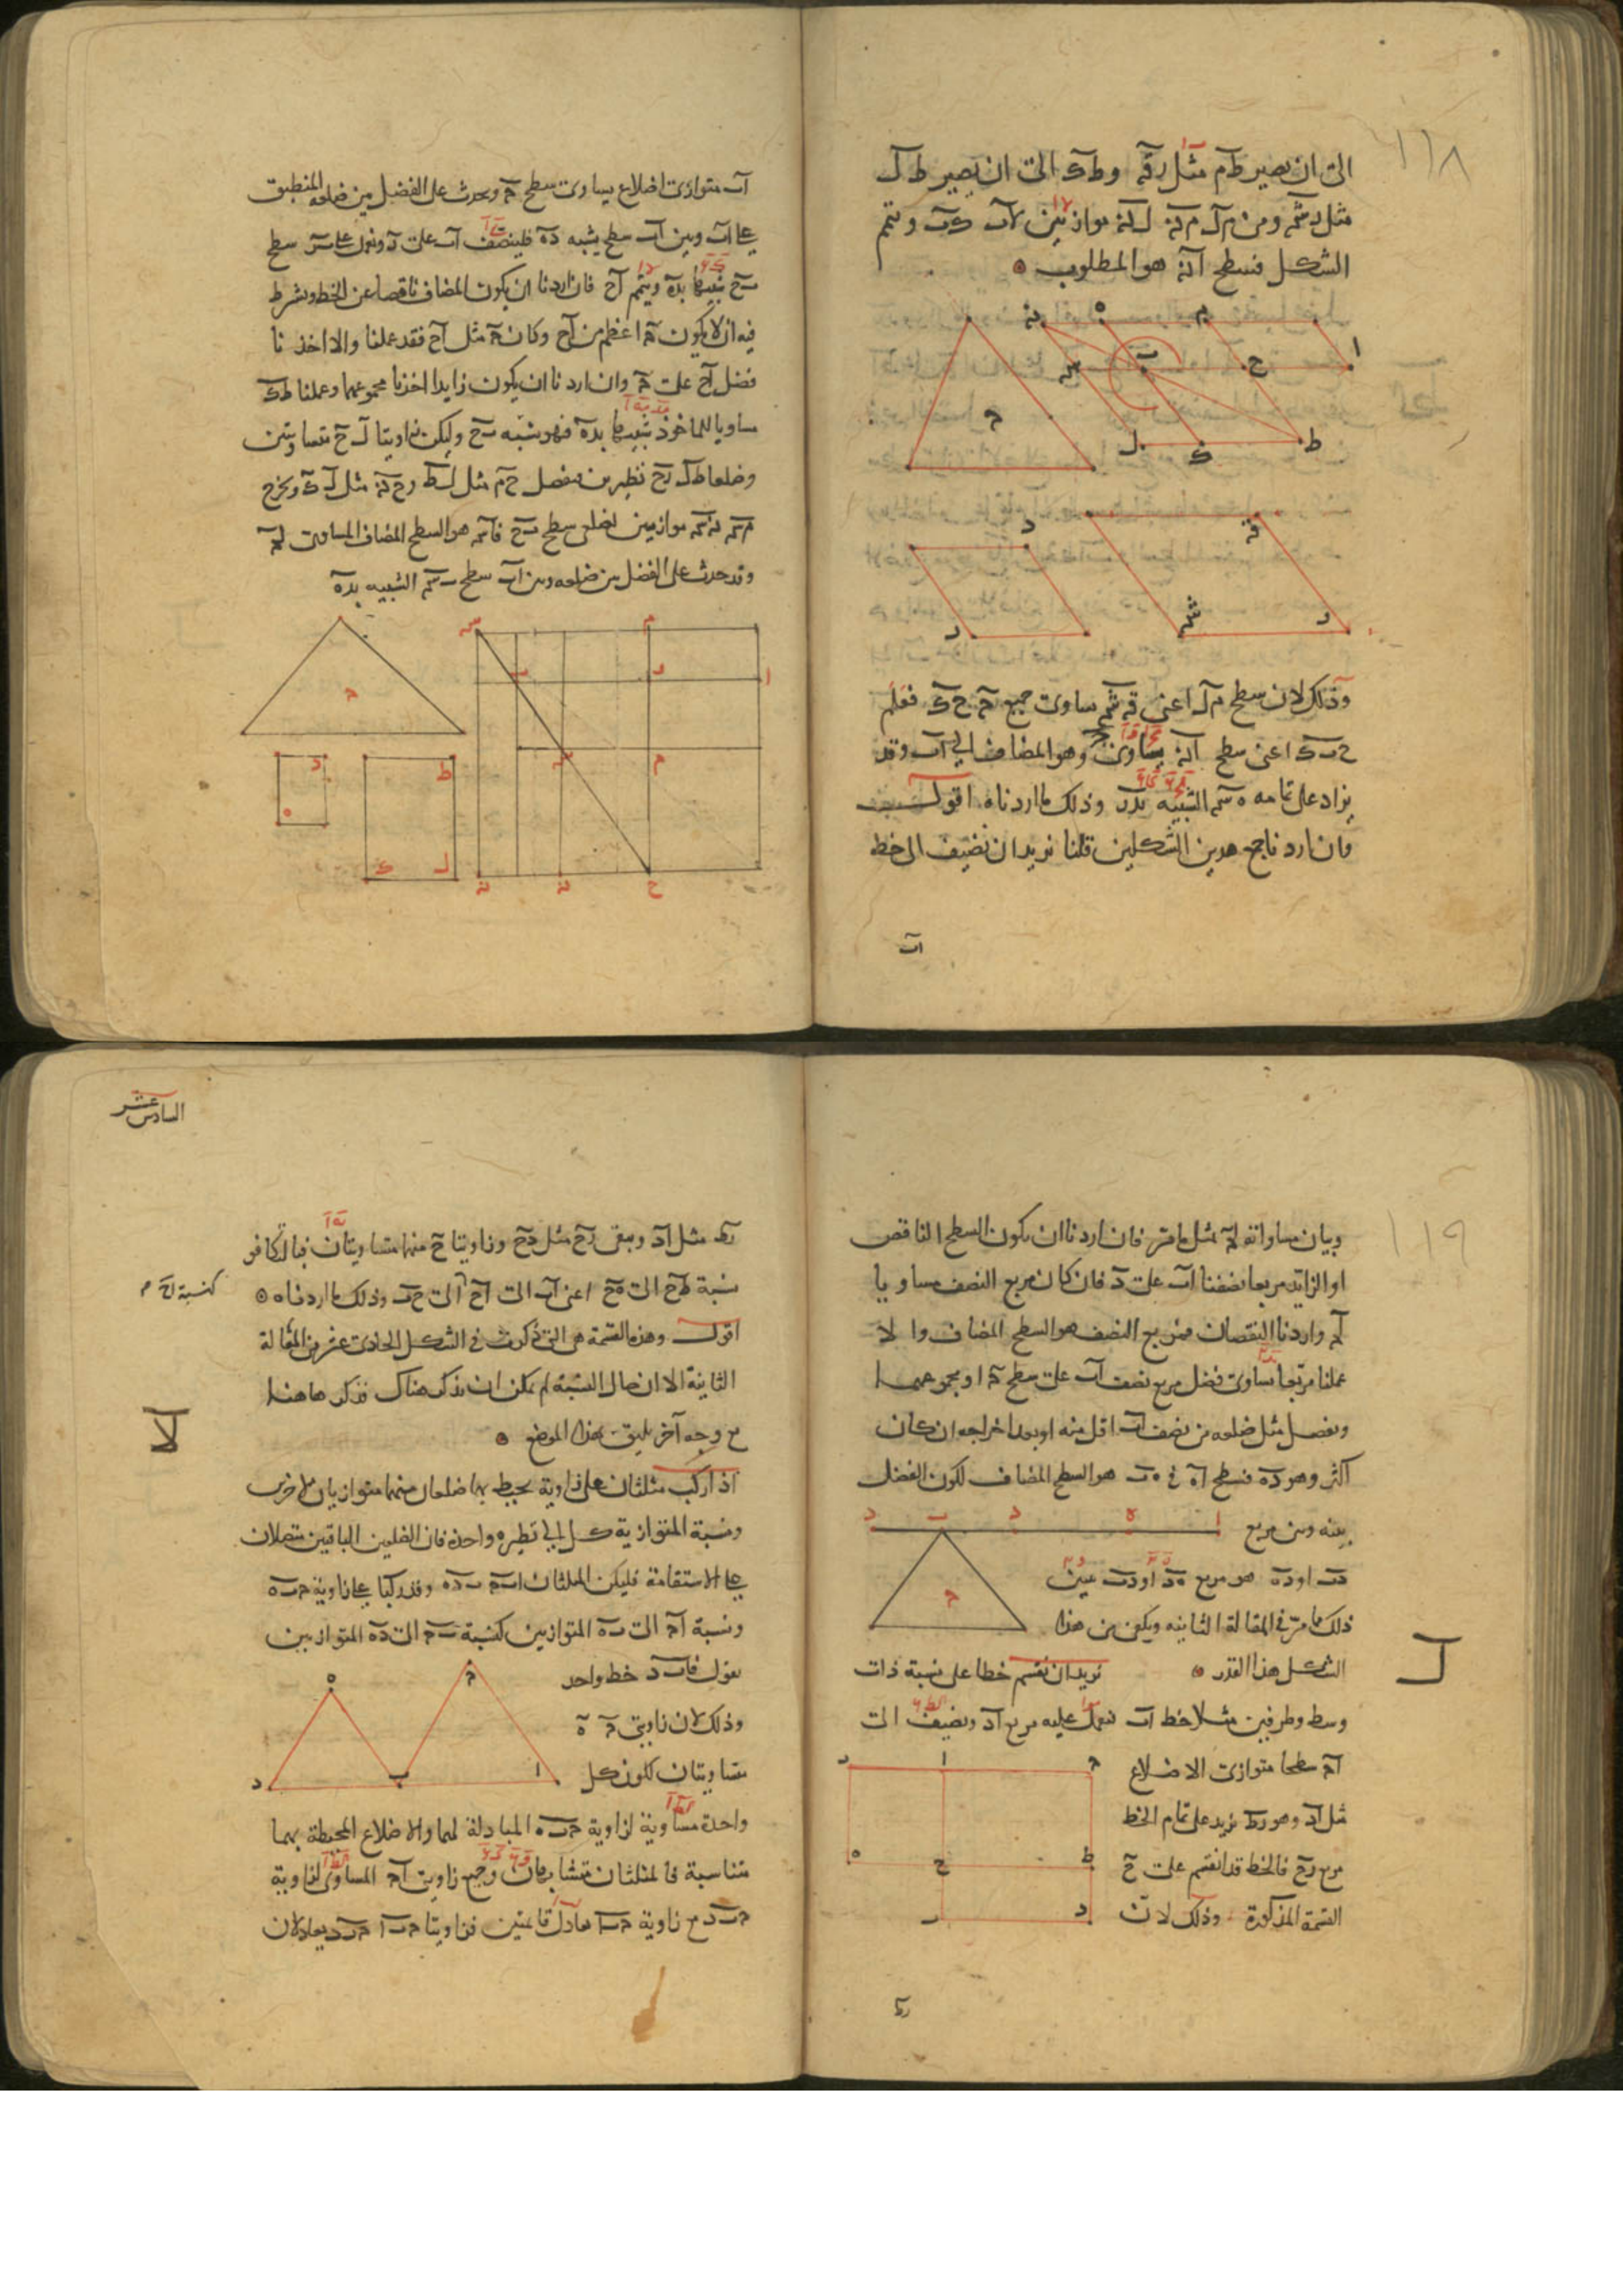 ١١٨
الى ان يصير ط م مثل رق و ط ك الى ان يصير ط ل
مثل ر ش ومن م ل م ن ل ن موازيين لا ب ك ب ونتم
الشكل فسطح ا ن هو المطلوب
وذلك لان سطح م ل اعنى ق ش ساوى جميع ح ك فعلم
ح ب ك اعنى سطح ا ن يساوى ح وهو المضاف الى ا ب وقد
يزاد على تمامه ه س الشبيه بدر وذلك ما اردناه اقول
وان اردنا جمع هذين الشكلين قلنا نريد ان نضيف الى خط
ا ب
ا ب متوازى اضلاع يساوى سطح ح ويحدث على الفضل بين ضلعه المنطبق
على ا ب وبين ا ب سطح يشبه د ه فلينصف ا ب على ر ونعمل على ر ب سطح
ب ح شبيها بده ويتمم ا ح فان اردنا ان يكون المضاف ناقصا عن الخط ونشرط
فيه ان لا يكون ح اعظم من ا ح وكان ح مثل ا ح فقد عملنا والا اخذنا
فضل ا ح على ح وان اردنا ان يكون زايدا اخذنا مجموعهما وعملنا ط ك
مساويا للماخوذ شبيها بده فهو شبيه ب ح وليكن زاويتا ل ح متساويتين
وضلعا ط ل ر ح نظيرين فنفصل ح م مثل ل ط و ح ن مثل ل ك ونخرج
م س ن س موازيين لضلعى سطح ب ح فا س هو السطح المضاف المساوى لح
وقد حدث على الفضل بين ضلعه وبين ا ب سطح ب س الشبيه بده
١١٩
وبيان مساواته لح مثل ما مر فان اردنا ان يكون السطح الناقص
او الزايد مربعا نصفنا ا ب على د فان كان مربع النصف مساويا
لح واردنا النقصان فمربع النصف هو السطح المضاف والا
عملنا مربعا يساوى فضل مربع نصف ا ب على سطح ح او مجموعهما
ونفصل مثل ضلعه من نصف ا ب اقل منه او بعد اخراجه ان كان
اكثر وهو د ه فسطح ا ه فى ه ب هو السطح المضاف لكون الفضل
بينه وبين مربع
د ب او د ه هو مربع ه د او د ب عين
ذلك ما مر فى المقالة الثانيه ويكون من هذا
الشكل هذا القدر نريد ان نقسم خطا على نسبة ذات
ل
وسط وطرفين مثلا خط ا ب نعمل عليه مربع ا د ونضيف الى
ا ح سطحا متوازى الاضلاع
مثل ا د وهو ر ط نزيد على تمام الخط
مربع ر ح فالخط قد انقسم على ح
القسمة المذكورة وذلك لان
ر ط
السادس عشر
ر ط مثل ا د ويبقى ر ح مثل د ح وزاويتا ح منهما متساويتان فبالتكافو
نسبة ط ح الى ه ح اعنى ا ب الى ا ح ا الى ح ب وذلك ما اردناه
كنسبة ا ح
اقول وهذه القسمة هى التى ذكرت فى الشكل الحادى عشر من المقالة
الثانية الا ان حال النسبة لم يمكن ان يذكر هناك فذكر هاهنا
مع وجه آخر يليق بهذا الموضع
لا
اذا ركب مثلثان على زاوية يحيط بها ضلعان منهما متوازيان لاخرى
ونسبة المتوازية كل الى نظيره واحدة فان الضلعين الباقيين متصلان
على الاستقامة فليكن المثلثان ا ب ح ب د ه وقد ركبا على زاوية ح ب ه
ونسبة ا ح الى ب ه المتوازيين كنسبة ب ح الى د ه المتوازيين
نقول فا ب د خط واحد
وذلك لان زاويتى ح ه
متساويتان لكون كل
واحدة مساوية لزاوية ح ب ه المبادلة لهما والاضلاع المحيطة بهما
متناسبة فالمثلثان متشابهان وجميع زاويتى ا ح المساوى لزاوية
ح ب د مع زاوية ح ب ا معادل قائمتين فزاويتا ح ب ا ح ب د يعادلان